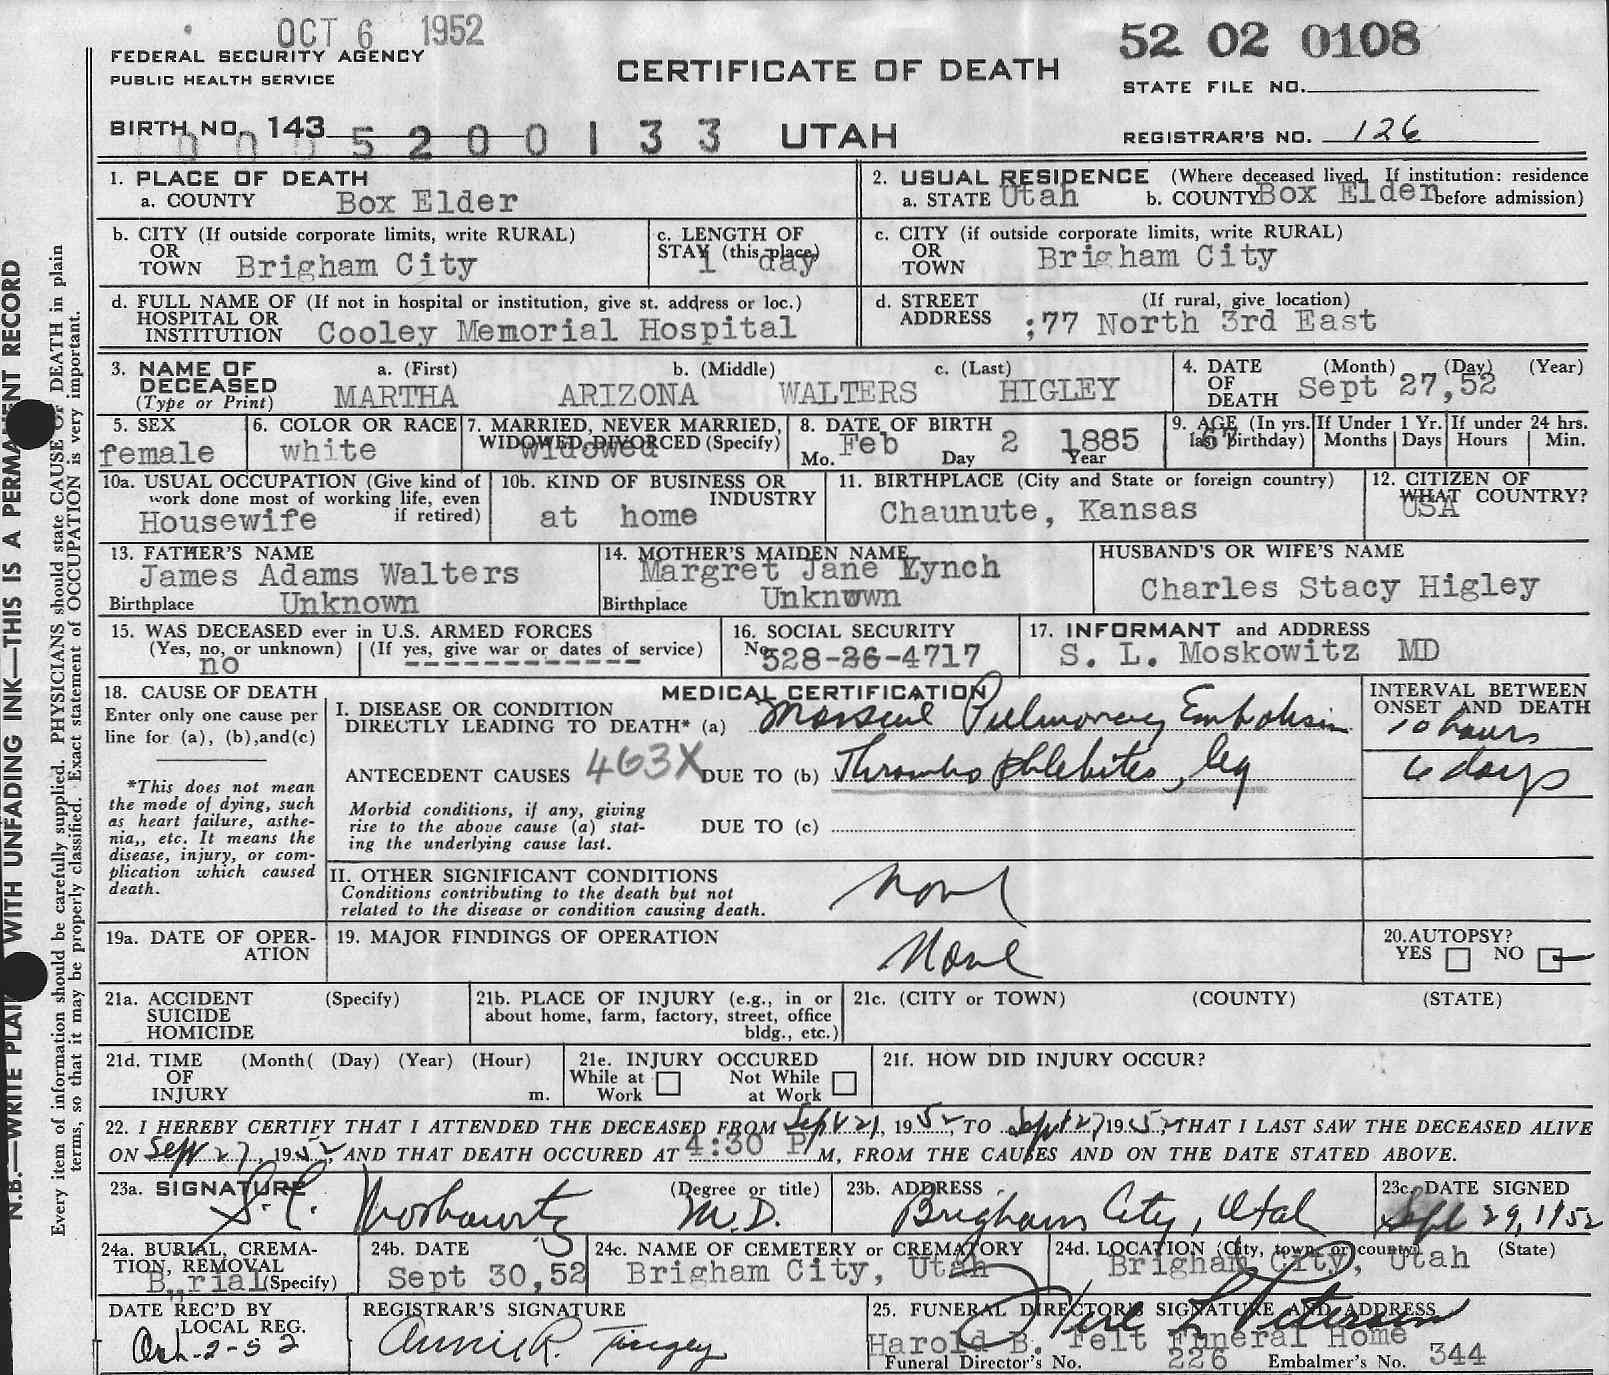 OCT 6 1952
52 02 0108
FEDERAL SECURITY AGENCY
PUBLIC HEALTH SERVICE
CERTIFICATE OF DEATH
STATE FILE NO.
BIRTH NO. 143
5200133
UTAH
REGISTRAR'S NO. 126
1. PLACE OF DEATH
a. COUNTY Box Elder
2. USUAL RESIDENCE (Where deceased lived. If institution: residence
a. STATE Utah b. COUNTY Box Elder before admission)
b. CITY (If outside corporate limits, write RURAL)
OR
TOWN Brigham City
c. LENGTH OF
STAY (this place)
1 day
c. CITY (if outside corporate limits, write RURAL)
OR
TOWN Brigham City
d. FULL NAME OF (If not in hospital or institution, give st. address or loc.)
HOSPITAL OR
INSTITUTION Cooley Memorial Hospital
d. STREET (If rural, give location)
ADDRESS :77 North 3rd East
3. NAME OF
DECEASED
(Type or Print)
a. (First) b. (Middle) c. (Last)
MARTHA ARIZONA WALTERS HIGLEY
4. DATE (Month) (Day) (Year)
OF
DEATH Sept 27,52
5. SEX
female
6. COLOR OR RACE
white
7. MARRIED, NEVER MARRIED,
WIDOWED, DIVORCED (Specify)
widowed
8. DATE OF BIRTH
Mo. Feb Day 2 1885
Year
9. AGE (In yrs.
last birthday)
67
If Under 1 Yr.
Months Days
If under 24 hrs.
Hours Min.
10a. USUAL OCCUPATION (Give kind of
work done most of working life, even
if retired)
Housewife
10b. KIND OF BUSINESS OR
INDUSTRY
at home
11. BIRTHPLACE (City and State or foreign country)
Chaunute, Kansas
12. CITIZEN OF
WHAT COUNTRY?
USA
13. FATHER'S NAME
James Adams Walters
Birthplace Unknown
14. MOTHER'S MAIDEN NAME
Margret Jane Lynch
Birthplace Unknown
HUSBAND'S OR WIFE'S NAME
Charles Stacy Higley
15. WAS DECEASED ever in U.S. ARMED FORCES
(Yes, no, or unknown) (If yes, give war or dates of service)
no --------------
16. SOCIAL SECURITY
No. 528-26-4717
17. INFORMANT and ADDRESS
S. L. Moskowitz MD
18. CAUSE OF DEATH
Enter only one cause per
line for (a), (b),and(c)
*This does not mean
the mode of dying, such
as heart failure, asthe-
nia,, etc. It means the
disease, injury, or com-
plication which caused
death.
MEDICAL CERTIFICATION
I. DISEASE OR CONDITION
DIRECTLY LEADING TO DEATH* (a) Massive Pulmonary Embolism
ANTECEDENT CAUSES 463X DUE TO (b) Thrombo phlebites, leg
Morbid conditions, if any, giving
rise to the above cause (a) stat-
ing the underlying cause last.
DUE TO (c)
II. OTHER SIGNIFICANT CONDITIONS
Conditions contributing to the death but not
related to the disease or condition causing death.
None
INTERVAL BETWEEN
ONSET AND DEATH
10 hours
6 days
19a. DATE OF OPER-
ATION
19. MAJOR FINDINGS OF OPERATION
None
20. AUTOPSY?
YES NO
21a. ACCIDENT (Specify)
SUICIDE
HOMICIDE
21b. PLACE OF INJURY (e.g., in or
about home, farm, factory, street, office
bldg., etc.)
21c. (CITY or TOWN) (COUNTY) (STATE)
21d. TIME (Month( (Day) (Year) (Hour)
OF
INJURY m.
21e. INJURY OCCURED
While at Not While
Work at Work
21f. HOW DID INJURY OCCUR?
22. I HEREBY CERTIFY THAT I ATTENDED THE DECEASED FROM Sept 21, 1952, TO Sept 27, 1952, THAT I LAST SAW THE DECEASED ALIVE
ON Sept 27, 1952, AND THAT DEATH OCCURED AT 4:30 P M, FROM THE CAUSES AND ON THE DATE STATED ABOVE.
23a. SIGNATURE (Degree or title)
S. L. Moskowitz M.D.
23b. ADDRESS
Brigham City, Utah
23c. DATE SIGNED
Sept 29, 1952
24a. BURIAL, CREMA-
TION, REMOVAL
B rial (Specify)
24b. DATE
Sept 30,52
24c. NAME OF CEMETERY or CREMATORY
Brigham City, Utah
24d. LOCATION (City, town, or county) (State)
Brigham City, Utah
DATE REC'D BY
LOCAL REG.
Oct-2-52
REGISTRAR'S SIGNATURE
Annie R. Tingey
25. FUNERAL DIRECTORS SIGNATURE AND ADDRESS
Harold B. Felt Funeral Home
Funeral Director's No. 226 Embalmer's No. 344
N.B.—WRITE PLAI WITH UNFADING INK—THIS IS A PERMANENT RECORD
Every item of information should be carefully supplied. PHYSICIANS should state CAUSE OF DEATH in plain
terms, so that it may be properly classified. Exact statement of OCCUPATION is very important.